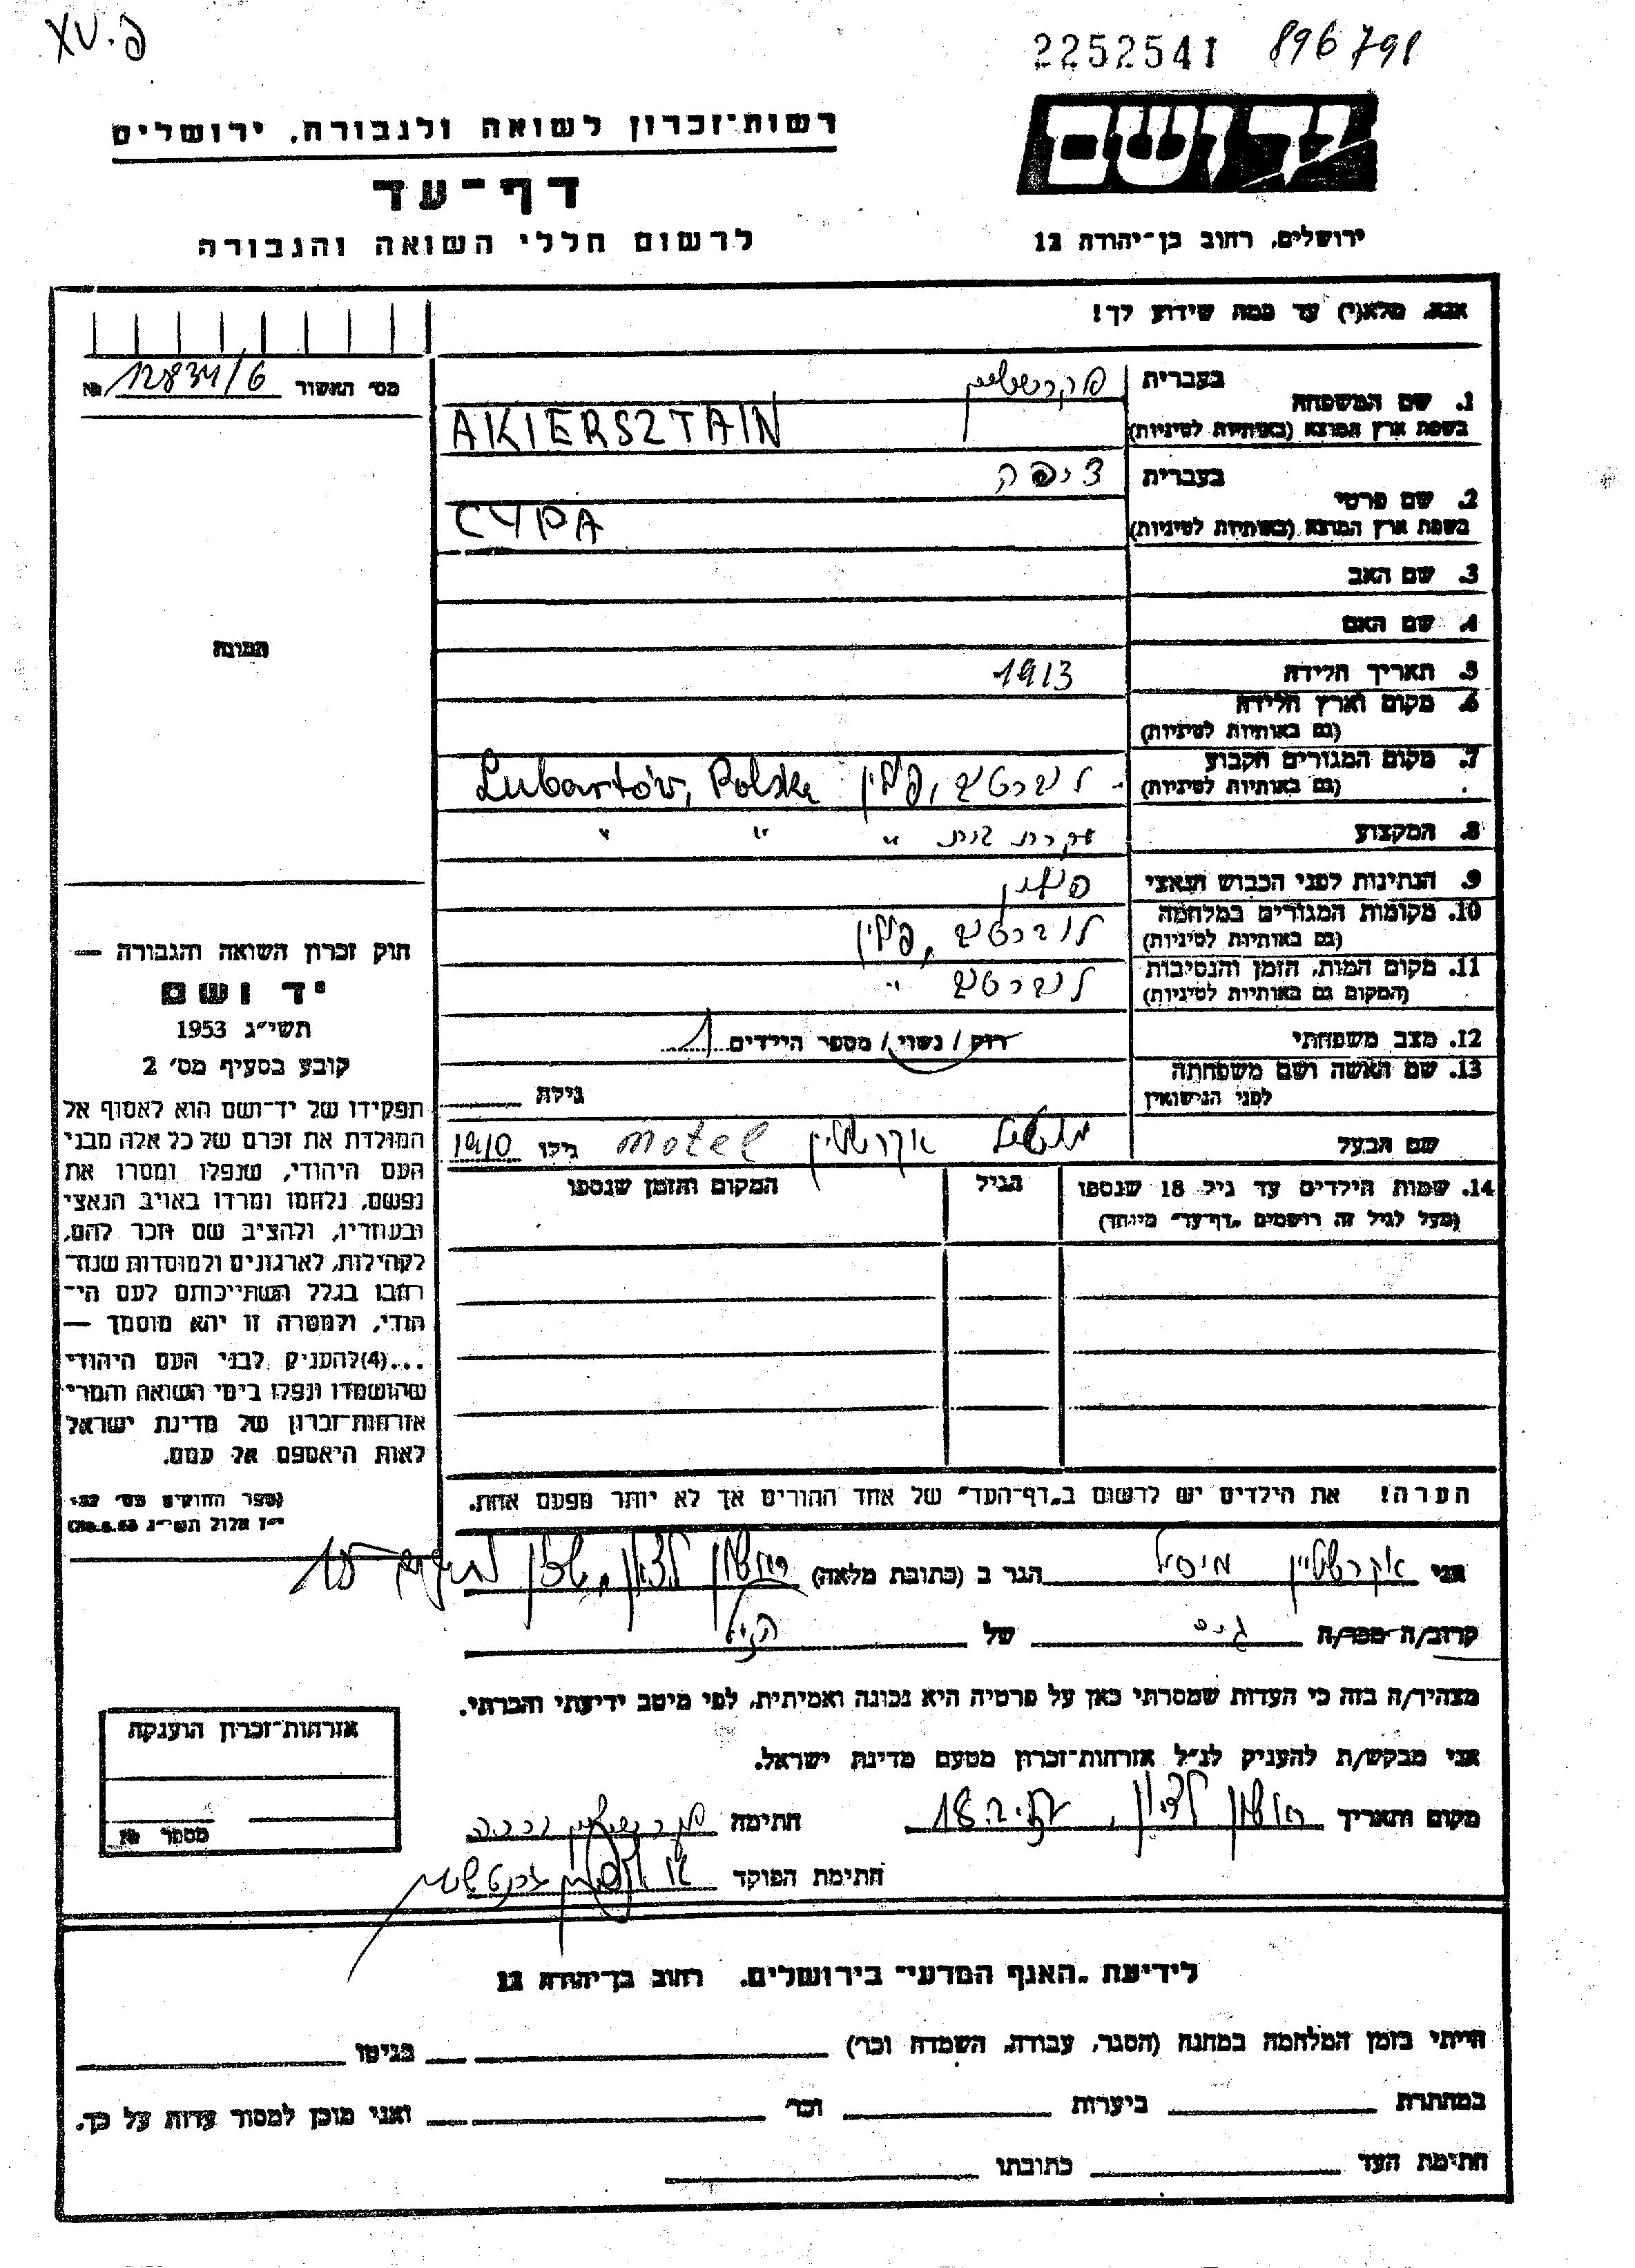 פ. XV
2252541 896791
רשות־זכרון לשואה ולגבורה, ירושלים
יד ושם
דף־עד
לרשום חללי השואה והגבורה
ירושלים, רחוב בן־יהודה 12
אנא, מלא(י) עד כמה שידוע לך!
מס׳ האשור 12834/6 №
1. שם המשפחה
בעברית אקרשטיין
בשפת ארץ המוצא (באותיות לטיניות) AKIERSZTAIN
2. שם פרטי
בעברית ציפה
בשפת ארץ המוצא (באותיות לטיניות) CYPA
3. שם האב
4. שם האם
תמונה
5. תאריך הלידה 1913
6. מקום וארץ הלידה
(גם באותיות לטיניות)
7. מקום המגורים הקבוע לוברטוב, פולין Lubartów, Polska
(גם באותיות לטיניות)
8. המקצוע עקרת בית " " "
9. הנתינות לפני הכבוש הנאצי פולין
10. מקומות המגורים במלחמה לוברטוב, פולין
(גם באותיות לטיניות)
11. מקום המות, הזמן והנסיבות לוברטוב "
(המקום גם באותיות לטיניות)
12. מצב משפחתי רוק / נשוי / מספר הילדים 1
13. שם האשה ושם משפחתה
לפני הנישואין גילה
שם הבעל אקרשטיין Motel גילו 1910
14. שמות הילדים עד גיל 18 שנספו הגיל המקום והזמן שנספו
(מעל לגיל זה רושמים „דף־עד״ מיוחד)
חוק זכרון השואה והגבורה —
יד ושם
תשי״ג 1953
קובע בסעיף מס׳ 2
תפקידו של יד־ושם הוא לאסוף אל
המולדת את זכרם של כל אלה מבני
העם היהודי, שנפלו ומסרו את
נפשם, נלחמו ומרדו באויב הנאצי
ובעוזריו, ולהציב שם וזכר להם,
לקהילות, לארגונים ולמוסדות שנח־
רבו בגלל השתייכותם לעם הי־
הודי, ולמטרה זו יהא מוסמך —
...(4)להעניק לבני העם היהודי
שהושמדו ונפלו בימי השואה והמרי
אזרחות־זכרון של מדינת ישראל
לאות היאספם אל עמם.
(ספר החוקים מס׳ 132
י״ז אלול תשי״ג 28.8.53)
הערה! את הילדים יש לרשום ב„דף־העד״ של אחד ההורים אך לא יותר מפעם אחת.
אני אקרשטיין מיסל הגר ב (כתובת מלאה) ראשון לציון, 10
קרוב/ה מכר/ה גיס של הנ״ל
מצהיר/ה בזה כי העדות שמסרתי כאן על פרטיה היא נכונה ואמיתית, לפי מיטב ידיעתי והכרתי.
אני מבקש/ת להעניק לנ״ל אזרחות־זכרון מטעם מדינת ישראל.
אזרחות־זכרון הוענקה
מספר №
מקום ותאריך ראשון לציון, 18.2. חתימה
חתימת הפוקד
לידיעת „האגף המדעי״ בירושלים, רחוב בן־יהודה 12
הייתי בזמן המלחמה במחנה (הסגר, עבודה, השמדה וכר׳) בגיטו
במחתרת ביערות וכר׳ ואני מוכן למסור עדות על כך.
חתימת העד כתובתו